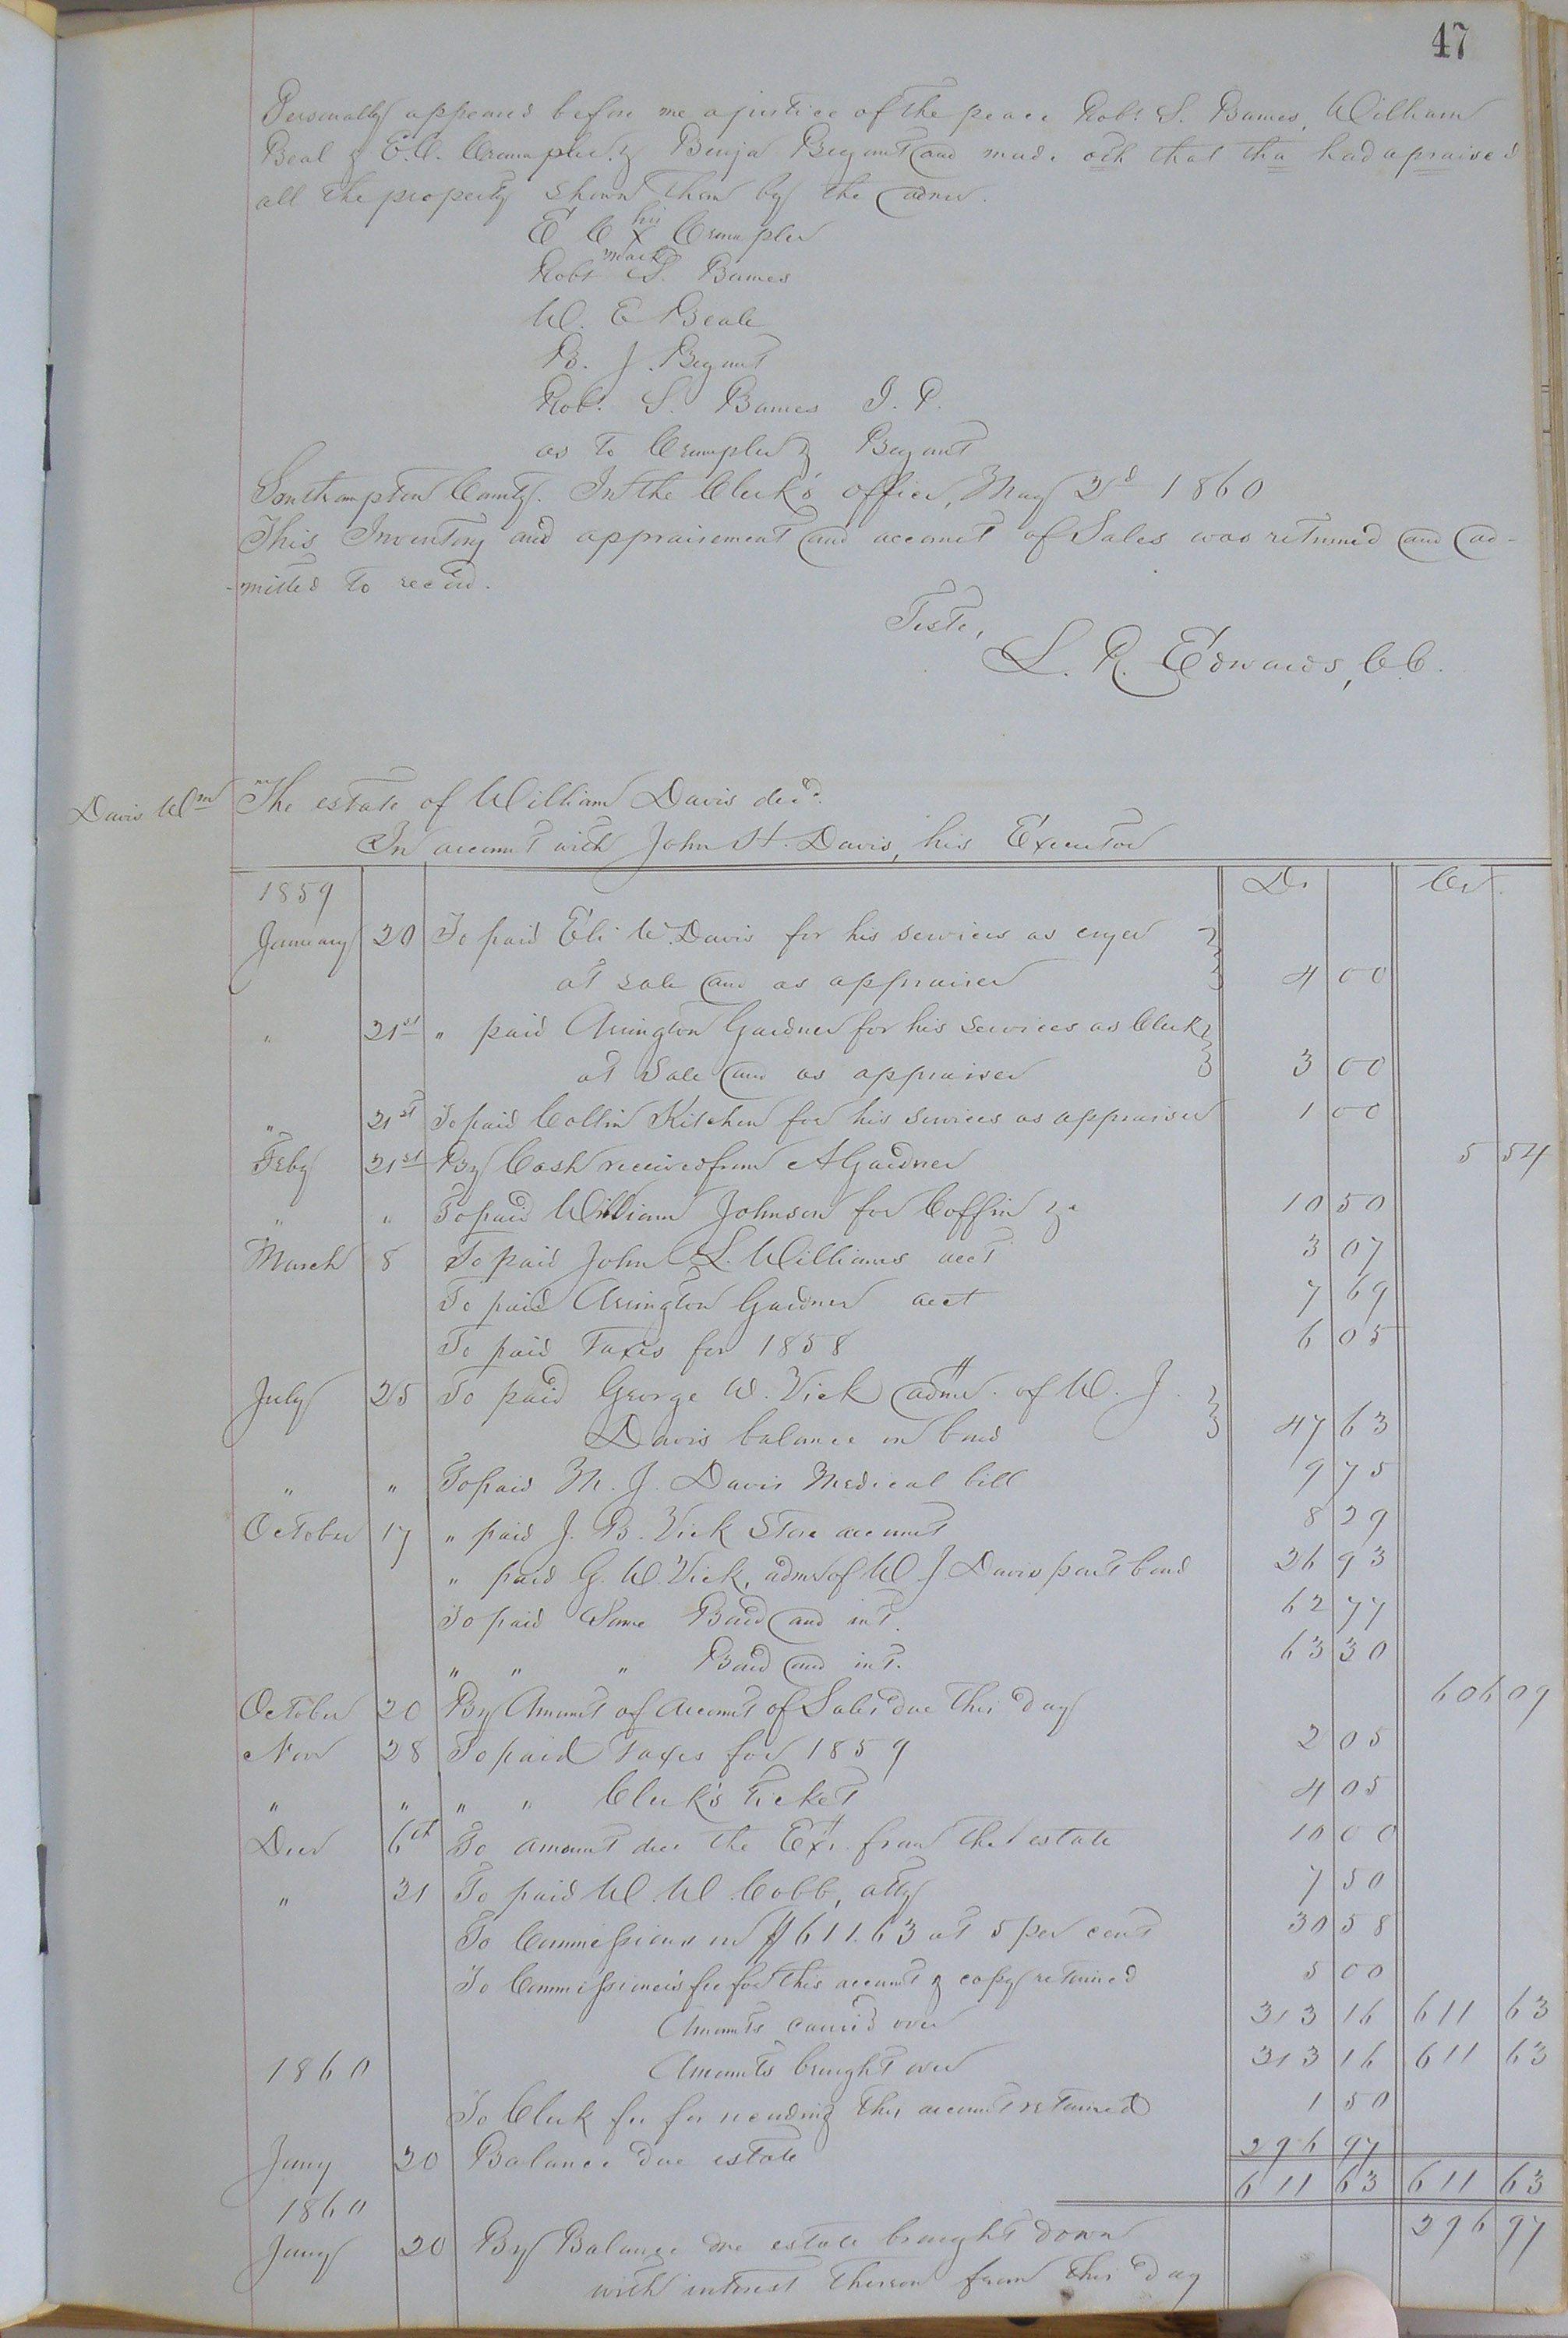 47
Personally appeared before me a justice of the peace Robt. S. Barnes, William
Beal & E. C. Crumpler & Benja Bryant and made oth that tha had apraised
all the property shown them by the admr.
his
E C X Crumpler
mark
Robt S. Barnes
W. E Beale
B. J. Bryant
Robt. S. Barnes J. P.
as to Crumpler & Bryant
Southampton County. In the Clerk's office, May 2d 1860
This Inventory and appraisement and account of Sales was returned and ad-
-mitted to record.
Teste,
L. R. Edwards, C.C.
Davis Wm
The estate of William Davis decd.
In account with John H. Davis, his Executor
1859 Dr Cr
January 20 To paid Eli W. Davis for his services as cryer
at sale and as appraiser 4 00
" 21st " paid Arrington Gardner for his services as Clerk
at Sale and as appraiser 3 00
" 21st To paid Collin Kitchen for his services as appraiser 1 00
Feby 21st By Cash received from A Gardner 5 54
" " To paid William Johnson for Coffin &c 10 50
March 8 To paid John L. Williams acct 3 07
To paid Arrington Gardner acct 7 69
To paid Taxes for 1858 6 05
July 25 To paid George W. Vick admr. of W. J.
Davis balance on bond 47 63
" " To paid M. J. Davis Medical bill 9 75
October 17 " paid J. B. Vick Store account 8 29
" paid G. W. Vick, admr of W J Davis part bond 26 93
To paid Same Bond and int. 62 77
" " " Bond and int. 63 30
October 20 By Amount of Account of Sales due this day 606 09
Nov 28 To paid Taxes for 1859 2 05
" " " " Clerk's Ticket 4 05
Decr 6th To amount due the Exr. from the estate 10 00
" 31 To paid W. W. Cobb, atty 7 50
To Commissions on $611.63 at 5 per cent 30 58
To Commissioner's fee for this account & copy returned 5 00
Amounts carried over 313 16 611 63
1860 Amounts brought over 313 16 611 63
To Clerk fee for recording this account returned 1 50
Jany 20 Balance due estate 296 97
611 63 611 63
1860
Jany 20 By Balance due estate brought down 296 97
with interest thereon from this day